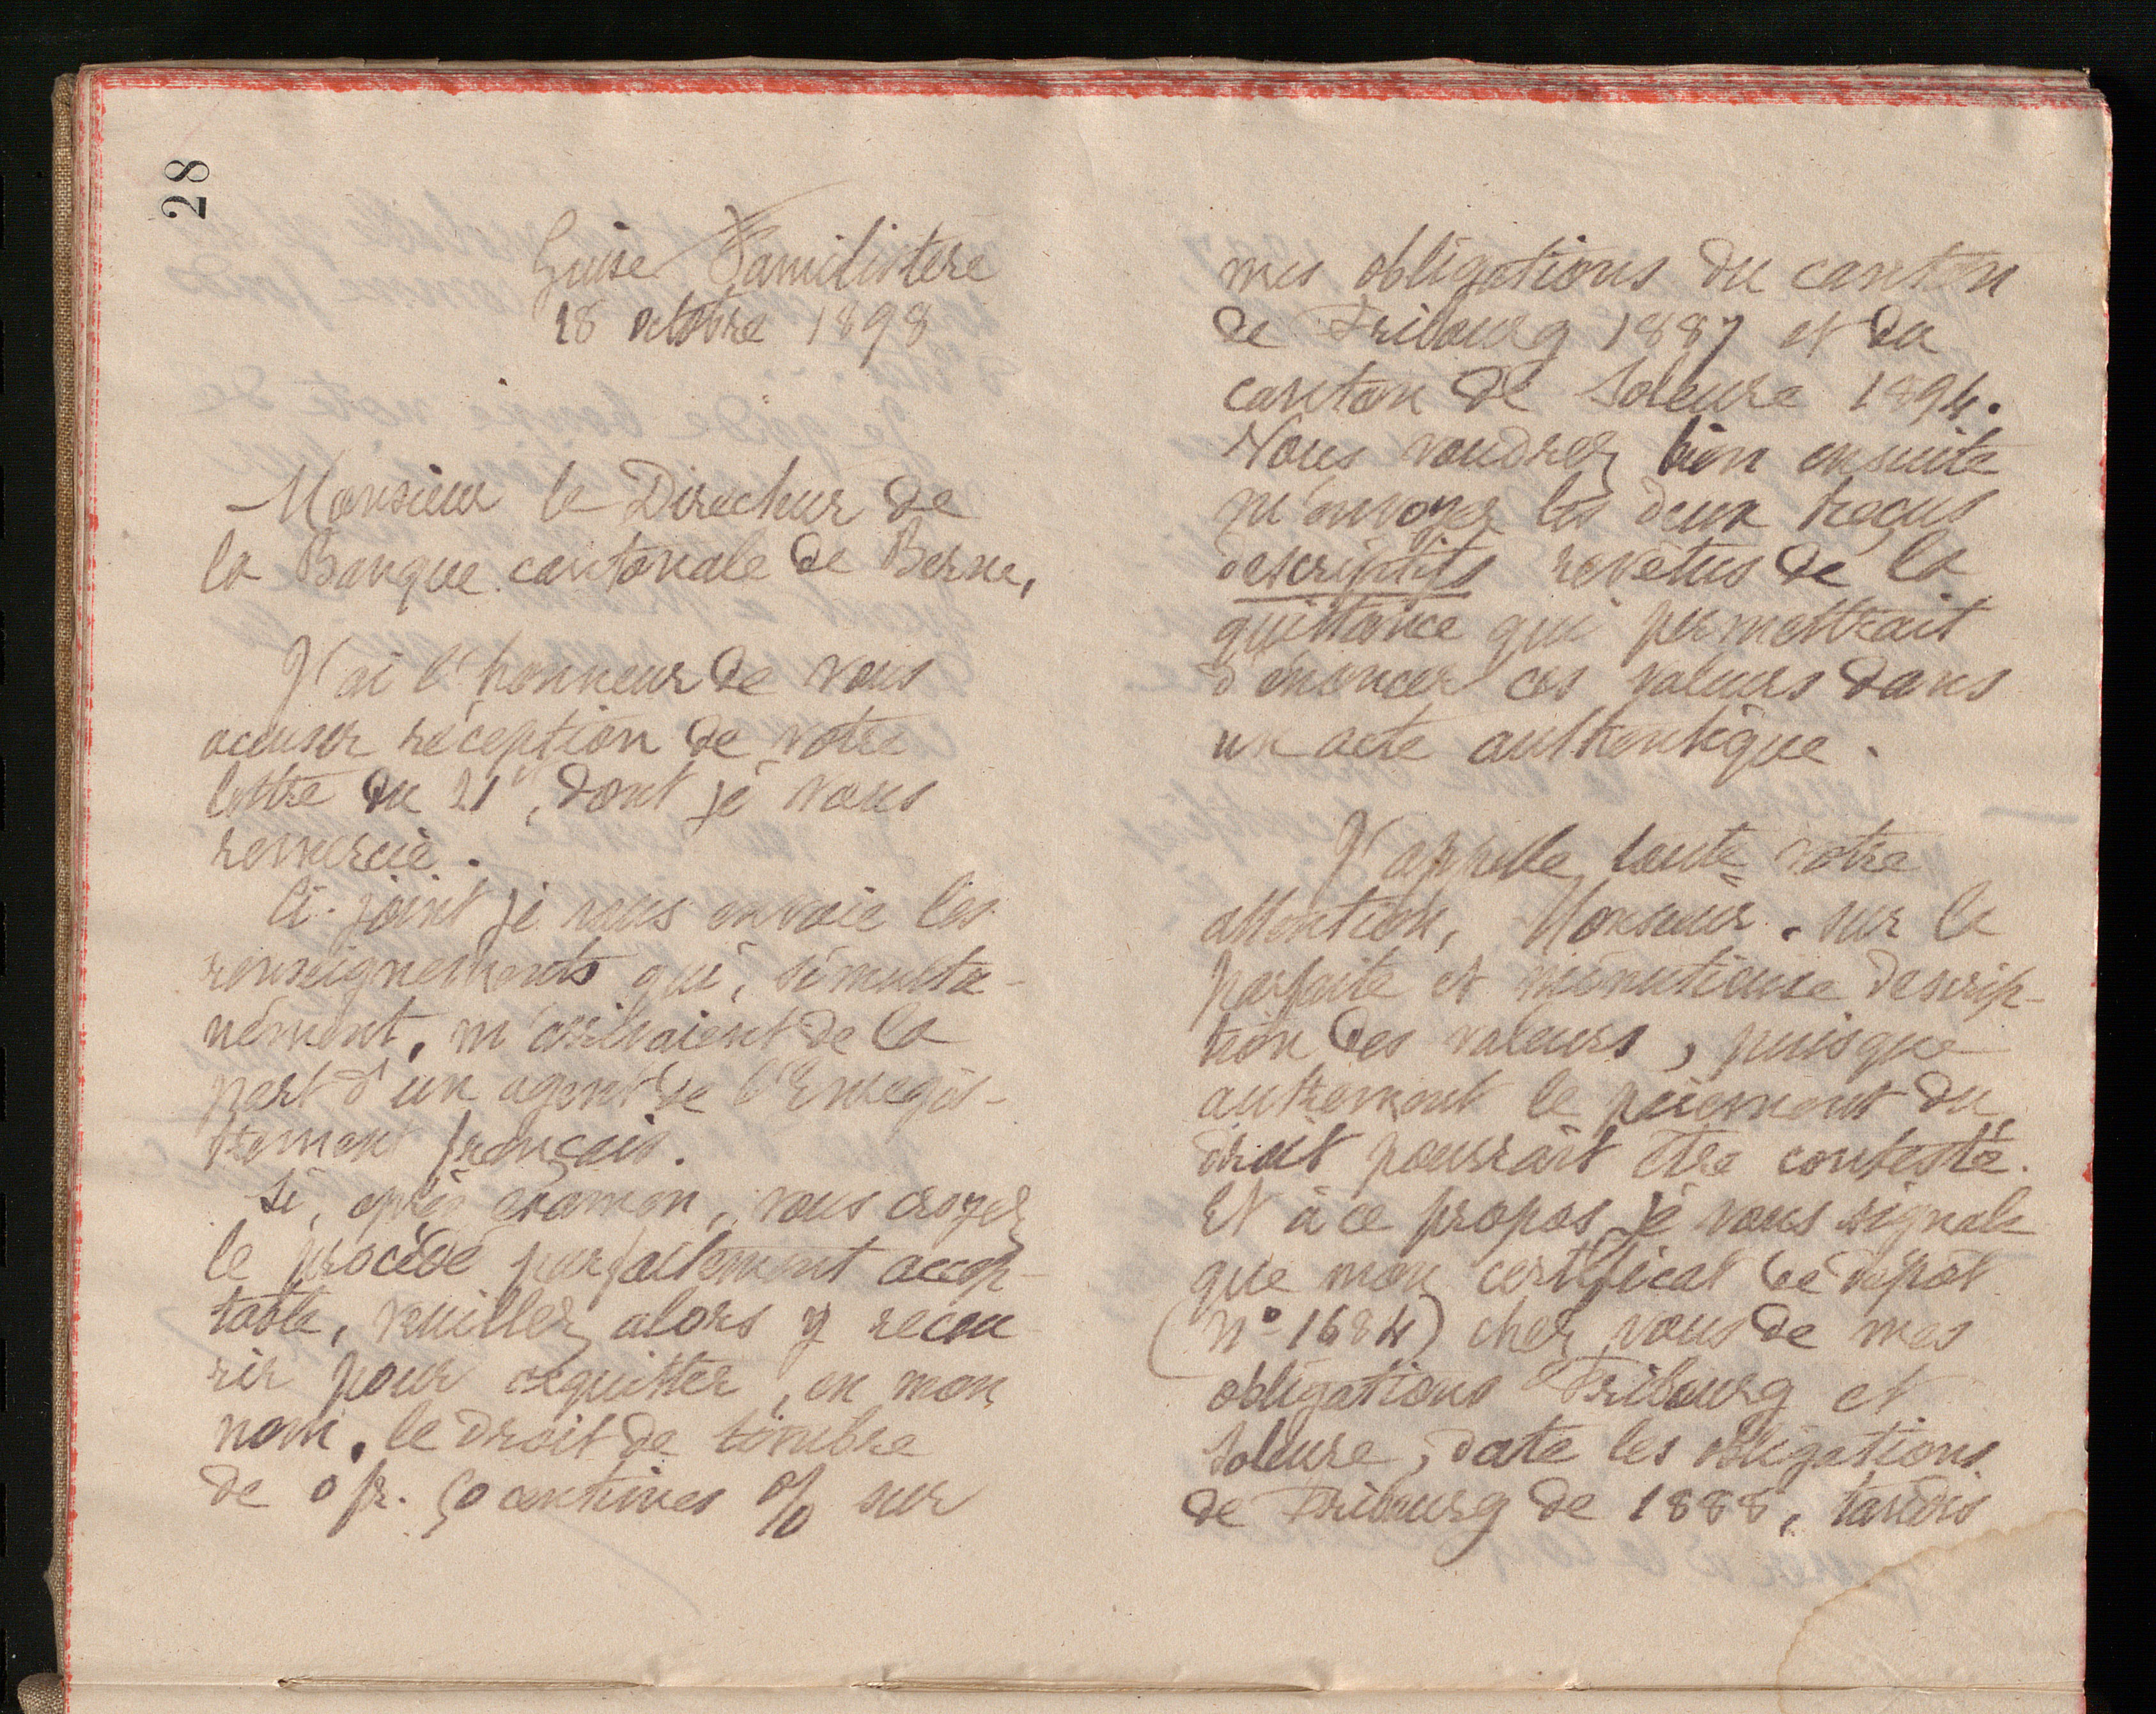 28
Guise Familistère
18 octobre 1898
Monsieur le Directeur de
la Banque cantonale de Berne,
J'ai l'honneur de vous
accuser réception de votre
lettre du 21 ct, dont je vous
remercie.
Ci-joint je vous envoie les
renseignements qui, simulta-
nément, m'arrivaient de la
part d'un agent de l'Enregis-
trement français.
Si, après examen, vous croyez
le procédé parfaitement accep-
table, veuillez alors y recou
rir pour acquitter, en mon
nom, le droit de timbre
de 0 fr. 50 centimes % sur
mes obligations du canton
de Fribourg 1887 et du
canton de Soleure 1894.
Vous voudrez bien ensuite
m'envoyer les deux reçus
descriptifs revêtus de la
quittance qui permettrait
d'énoncer ces valeurs dans
un acte authentique.
J'appelle toute votre
attention, Monsieur, sur la
parfaite et minutieuse descrip-
tion des valeurs, puisque
autrement le paiement du
droit pourrait être contesté.
Et à ce propos je vous signale
que mon certificat de dépôt
(No 1684) chez vous de mes
obligations Fribourg et
Soleure, date les obligations
de Fribourg de 1888, tandis